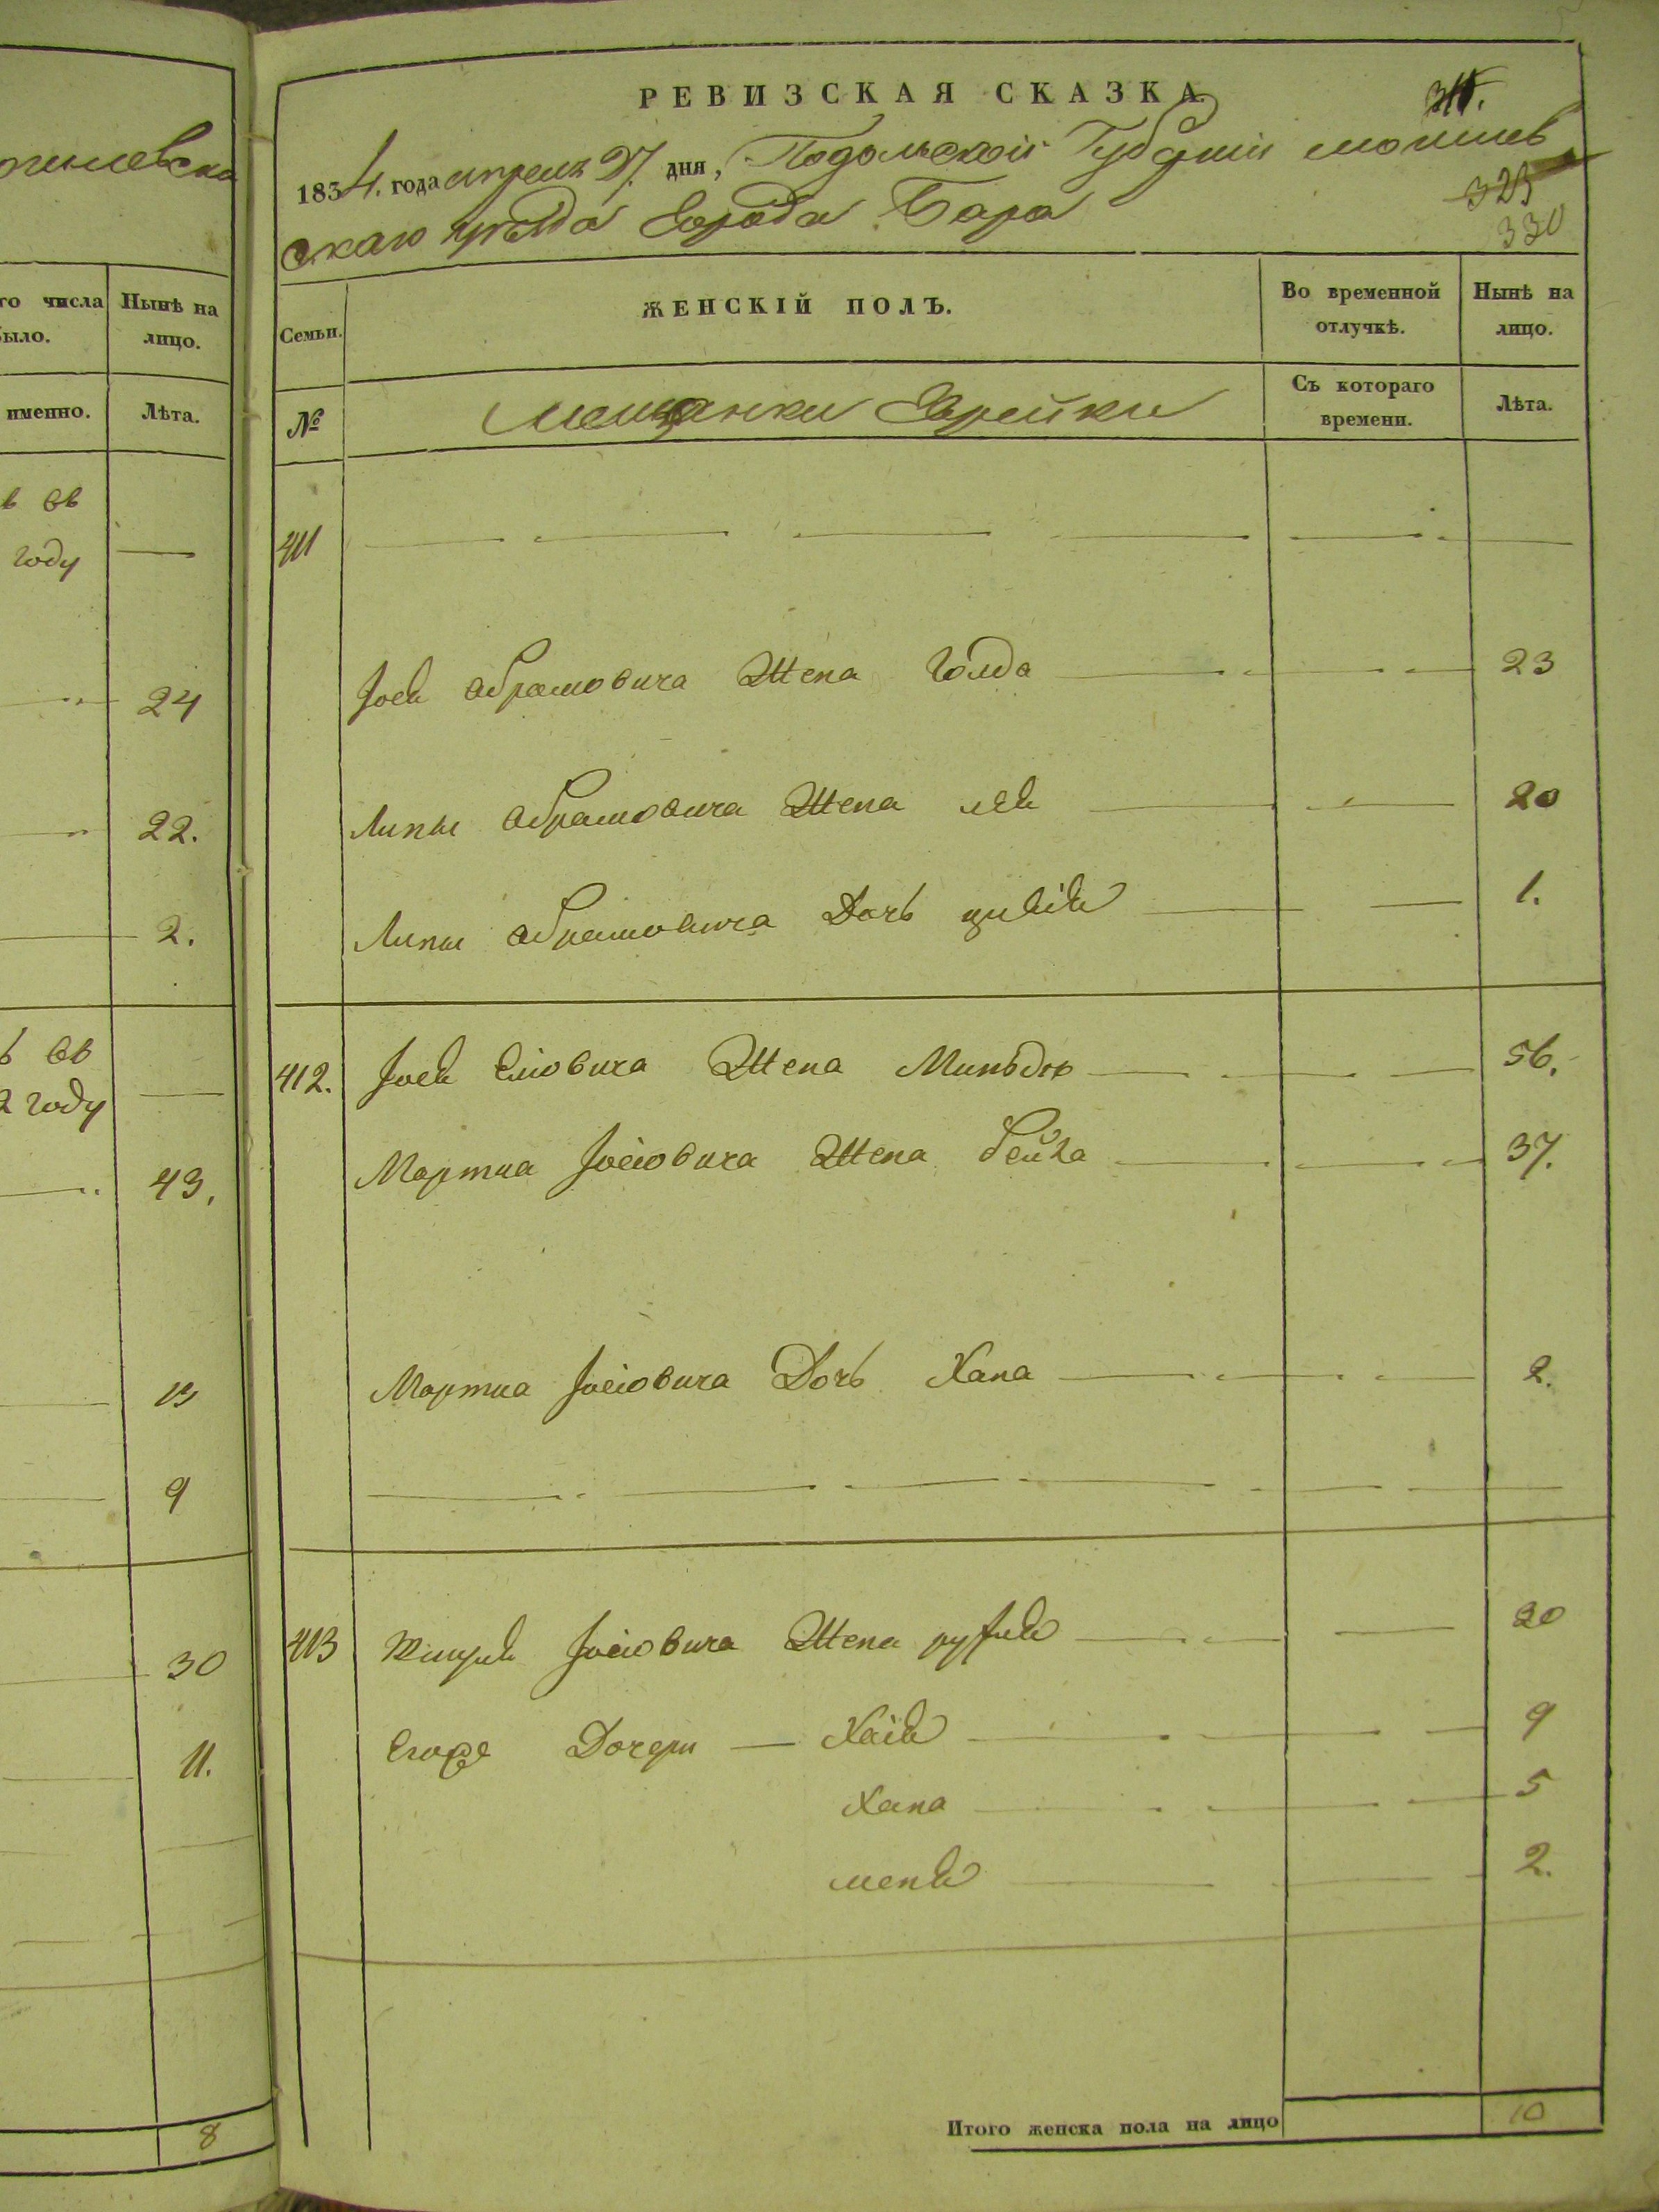 огилевска
го числа
было.
Нынѣ на
лицо.
именно.
Лѣта.
в въ
году
24
22.
2.
ъ въ
2 году
43.
13
9
30
11.
8
РЕВИЗСКАЯ СКАЗКА
1834. года апреля 27. дня, Подольской Губернии могилев
323
330
скаго уѣзда Города Бара
Семьи.
ЖЕНСКІЙ ПОЛЪ.
Во временной
отлучкѣ.
Нынѣ на
лицо.
№
мещанки Еврейки
Съ котораго
времени.
Лѣта.
411
Іося абрамовича Жена Голда 23
Липы абрамовича Жена лея 20
Липы абрамовича Дочь цивія 1.
412. Іося Еліовича Жена Миньдя 56.
Мортка Іосіовича Жена бейла 37.
Мортка Іосіовича Дочь Хана 2.
413 Іосіовича Жена 30
Егоже Дочери — Хая 9
Хана 5
меня 2.
Итого женска пола на лицо 10